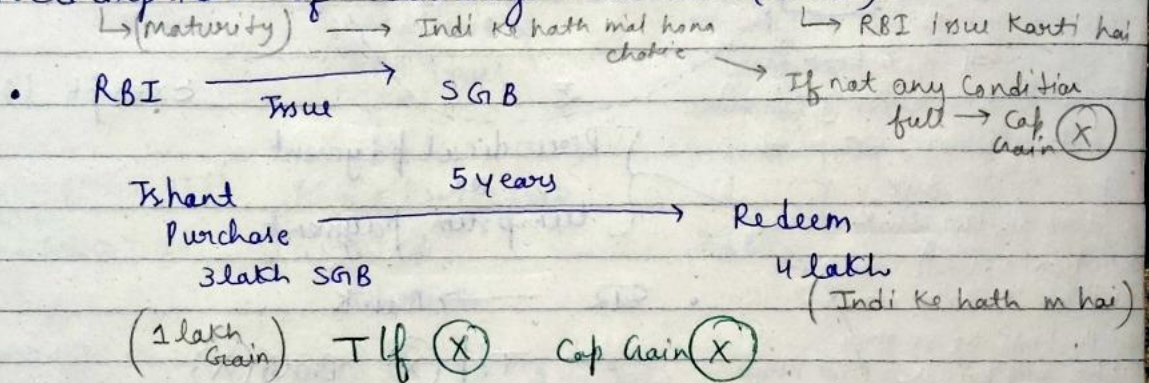 ↳ (maturity) → Indi ke hath mai hona chahie
↳ RBI issue Karti hai
→ If not any Condition
full → Cap Gain (X)
• RBI → Issue → SGB
Ishant
Purchase
3 lakh SGB
5 years
Redeem
4 lakh
(Indi Ke hath m hai)
(1 lakh Gain) Tlf (X) Cap Gain (X)